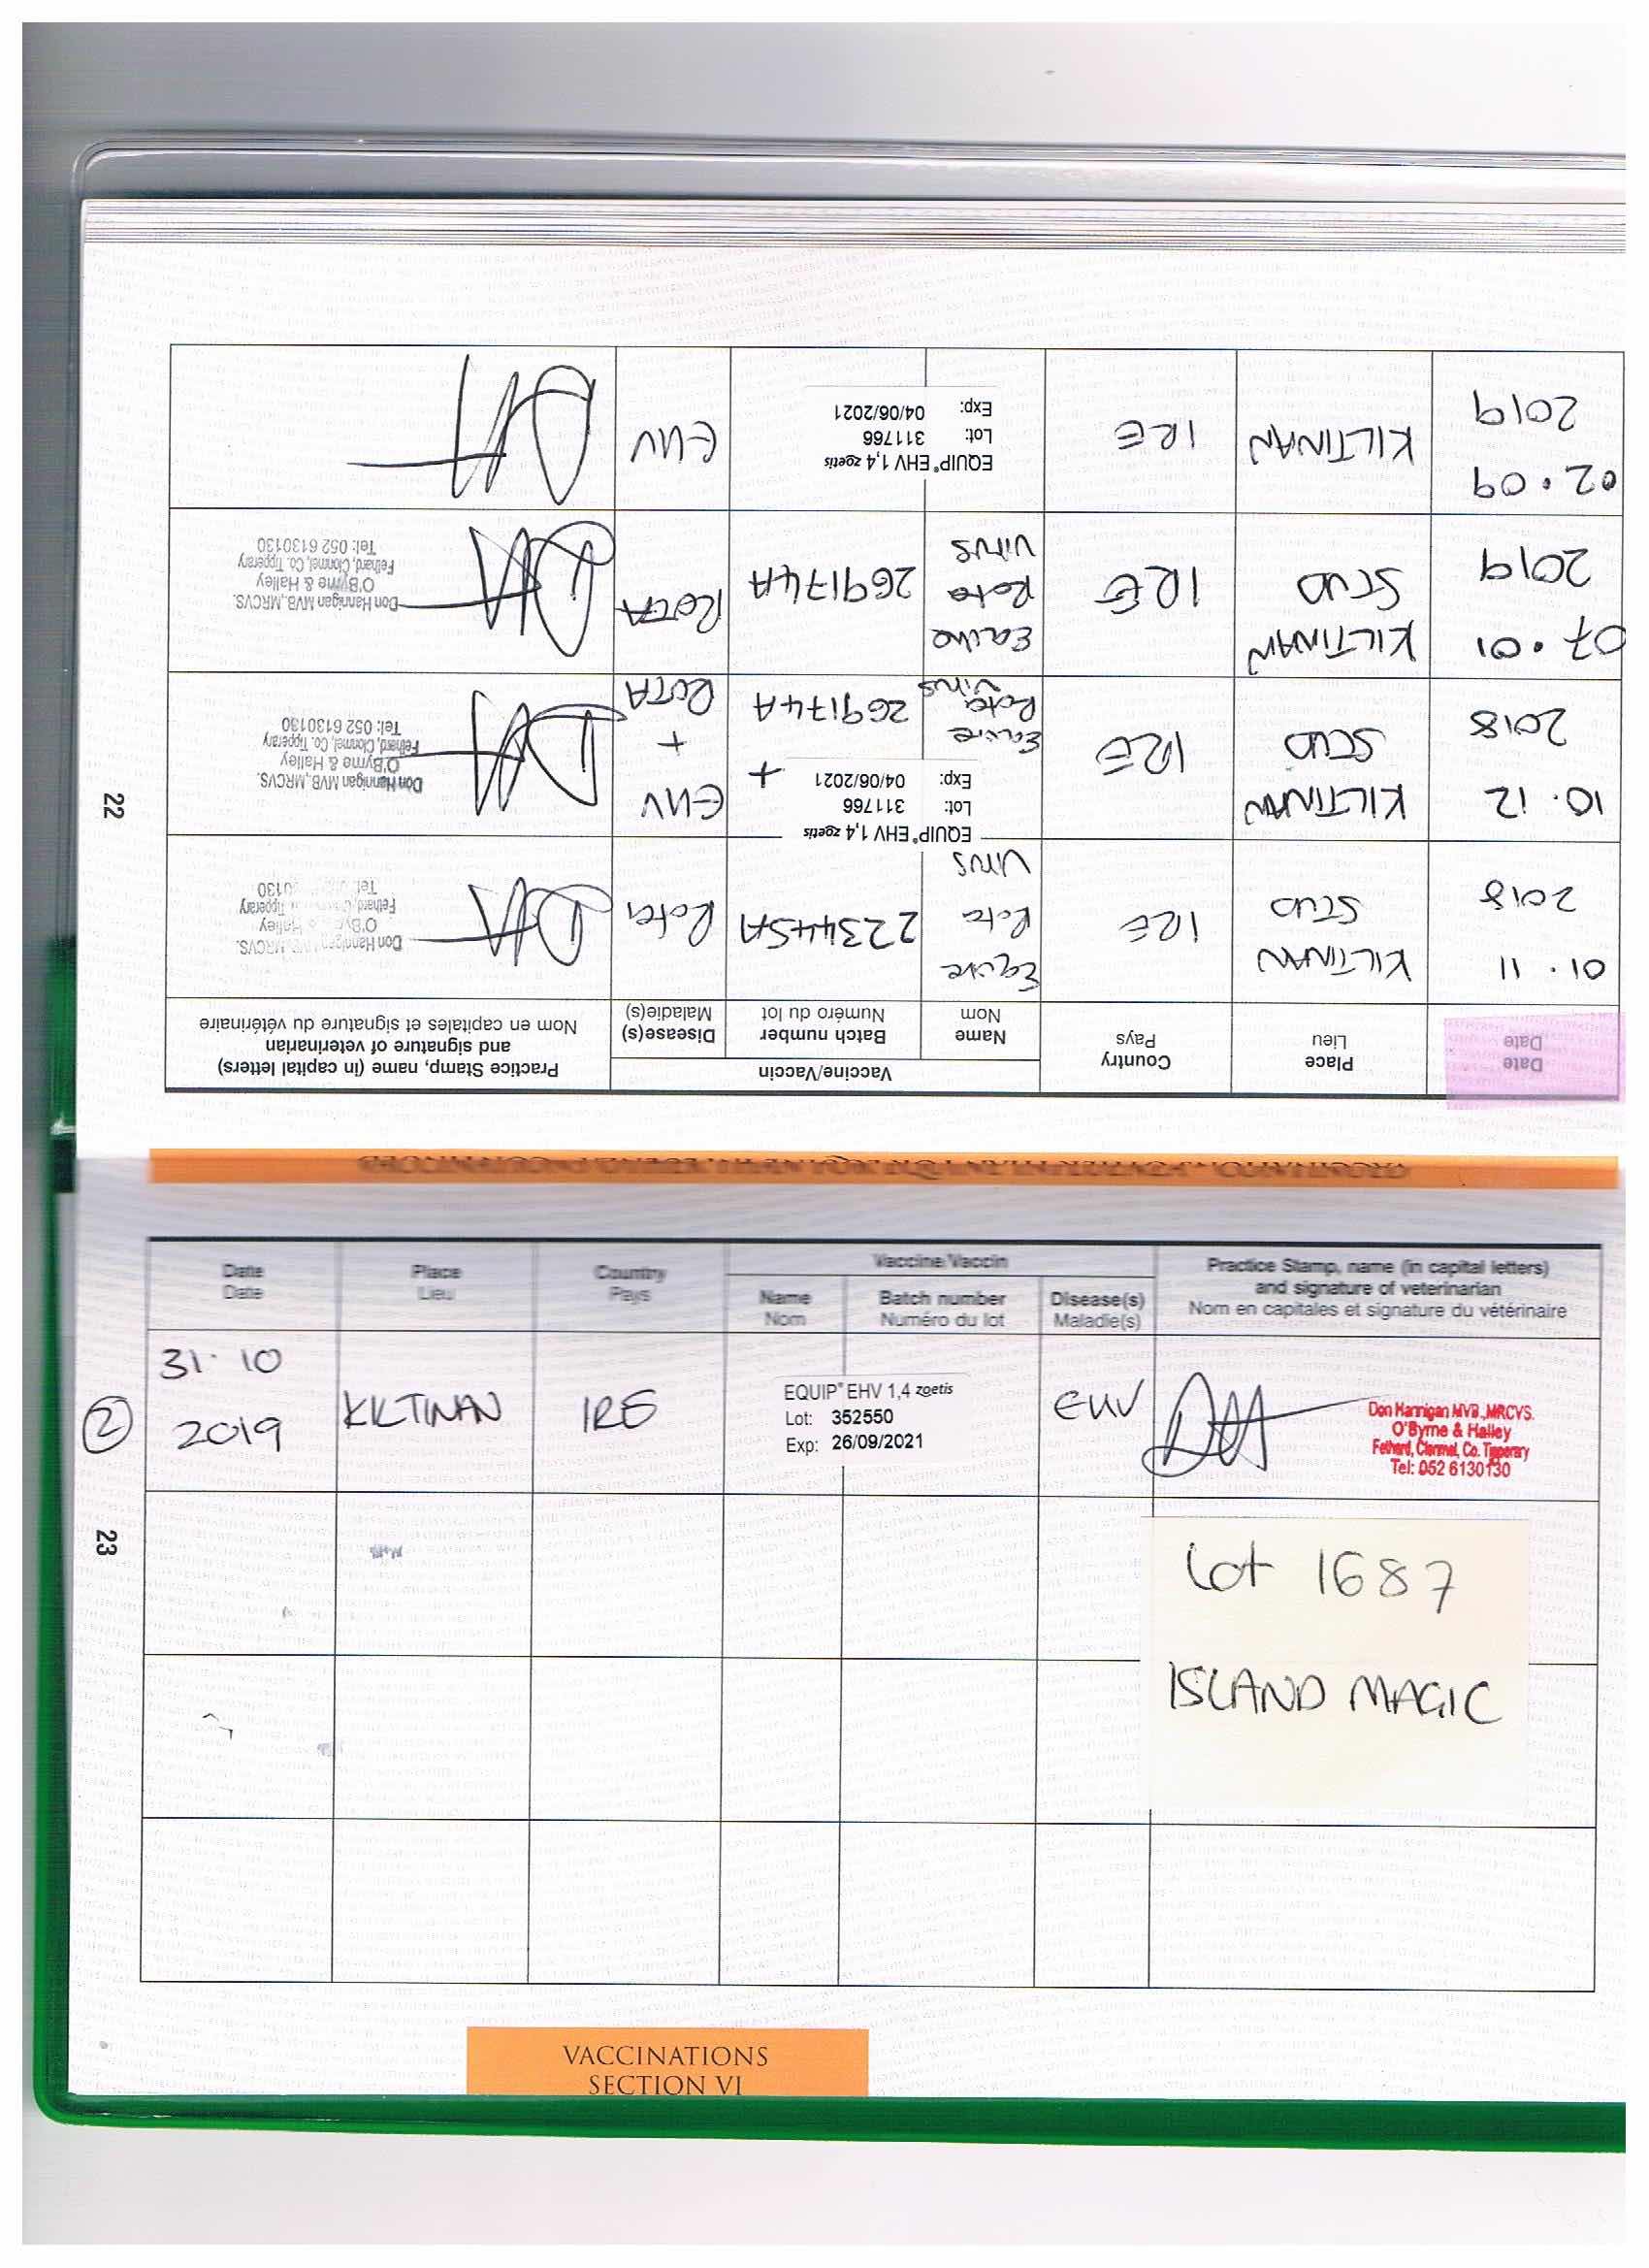 Date
Date
Place
Lieu
Country
Pays
Vaccine/Vaccin
Name
Nom
Batch number
Numéro du lot
Disease(s)
Maladie(s)
Practice Stamp, name (in capital letters)
and signature of veterinarian
Nom en capitales et signature du vétérinaire
01 . 11
2018
KILTINAN
STUD
IRE
Equine
Rota
Virus
223445A
Rota
Don Hannigan MVB, MRCVS.
O'Byrne & Halley
Fethard, Clonmel, Co. Tipperary
10 . 12
2018
KILTINAN
STUD
IRE
EQUIP® EHV 1,4 zoetis
Lot: 311766
Exp: 04/06/2021
+
Equine
Rota
Virus
269174A
EHV
+
ROTA
Don Hannigan MVB, MRCVS.
O'Byrne & Halley
Fethard, Clonmel, Co. Tipperary
Tel: 052 6130130
07 . 01
2019
KILTINAN
STUD
IRE
Equine
Rota
Virus
269174A
ROTA
Don Hannigan MVB, MRCVS.
O'Byrne & Halley
Fethard, Clonmel, Co. Tipperary
Tel: 052 6130130
02 . 09
2019
KILTINAN
IRE
EQUIP® EHV 1,4 zoetis
Lot: 311766
Exp: 04/06/2021
EHV
22
Date
Date
Place
Lieu
Country
Pays
Vaccine/Vaccin
Name
Nom
Batch number
Numéro du lot
Disease(s)
Maladie(s)
Practice Stamp, name (in capital letters)
and signature of veterinarian
Nom en capitales et signature du vétérinaire
2
31 . 10
2019
KILTINAN
IRE
EQUIP® EHV 1,4 zoetis
Lot: 352550
Exp: 26/09/2021
EHV
Don Hannigan MVB, MRCVS.
O'Byrne & Halley
Fethard, Clonmel, Co. Tipperary
Tel: 052 6130130
23
Lot 1687
ISLAND MAGIC
VACCINATIONS
SECTION VI